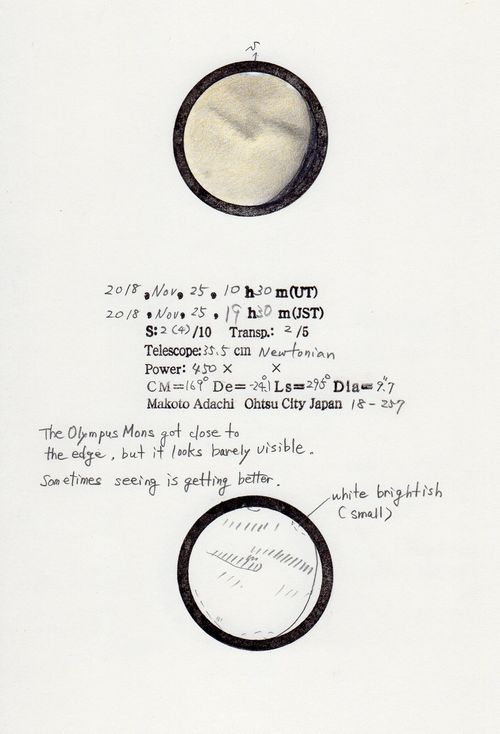 S
2018, Nov, 25, 10 h 30 m (UT)
2018, Nov, 25, 19 h 30 m (JST)
S: 2 (4) /10 Transp.: 2 /5
Telescope: 35.5 cm Newtonian
Power: 450 × ×
CM=169° De=-24.1° Ls=295° Dia=9.″7
Makoto Adachi Ohtsu City Japan 18-257
The Olympus Mons got close to
the edge, but it looks barely visible.
Sometimes seeing is getting better.
white brightish
(small)